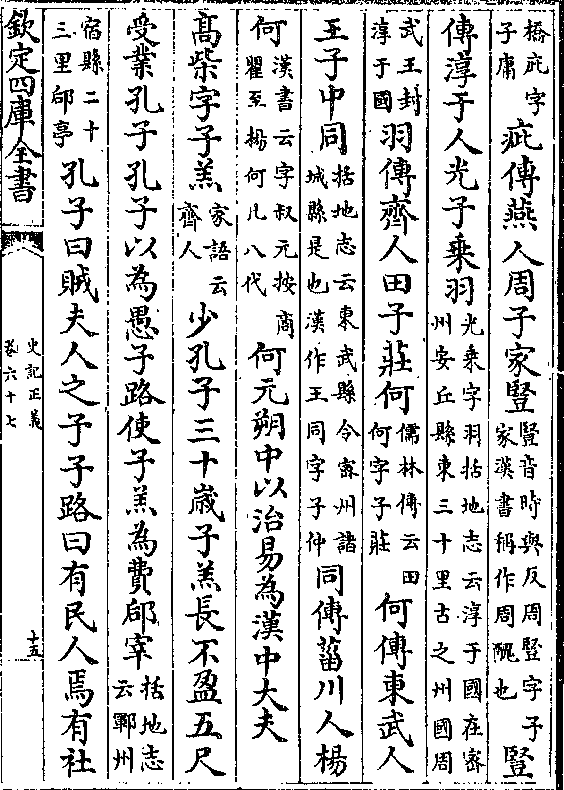 橋庇字子庸疵傳燕人周子家豎豎音時與反周豎字子家漢書稱作周醜也豎
傳淳于人光子乗羽光乗字羽括地志云淳于國在宻州安丘縣東三十里古之州國周
武王封淳于國羽傳齊人田子莊何儒林傳云田何字子莊何傳東武人
王子中同括地志云東武縣今宻州諸城縣是也漢作王同字子仲同傳菑川人楊
何漢書云字叔元按商瞿至楊何凡八代何元朔中以治易為漢中大夫
髙柴字子羔家語云齊人少孔子三十歳子羔長不盈五尺
受業孔子孔子以為愚子路使子羔為費郈宰括地志云鄆州
宿縣二十三里郈亭孔子曰賊夫人之子子路曰有民人焉有社
欽定四庫全書
史記正義
卷六十七
十五